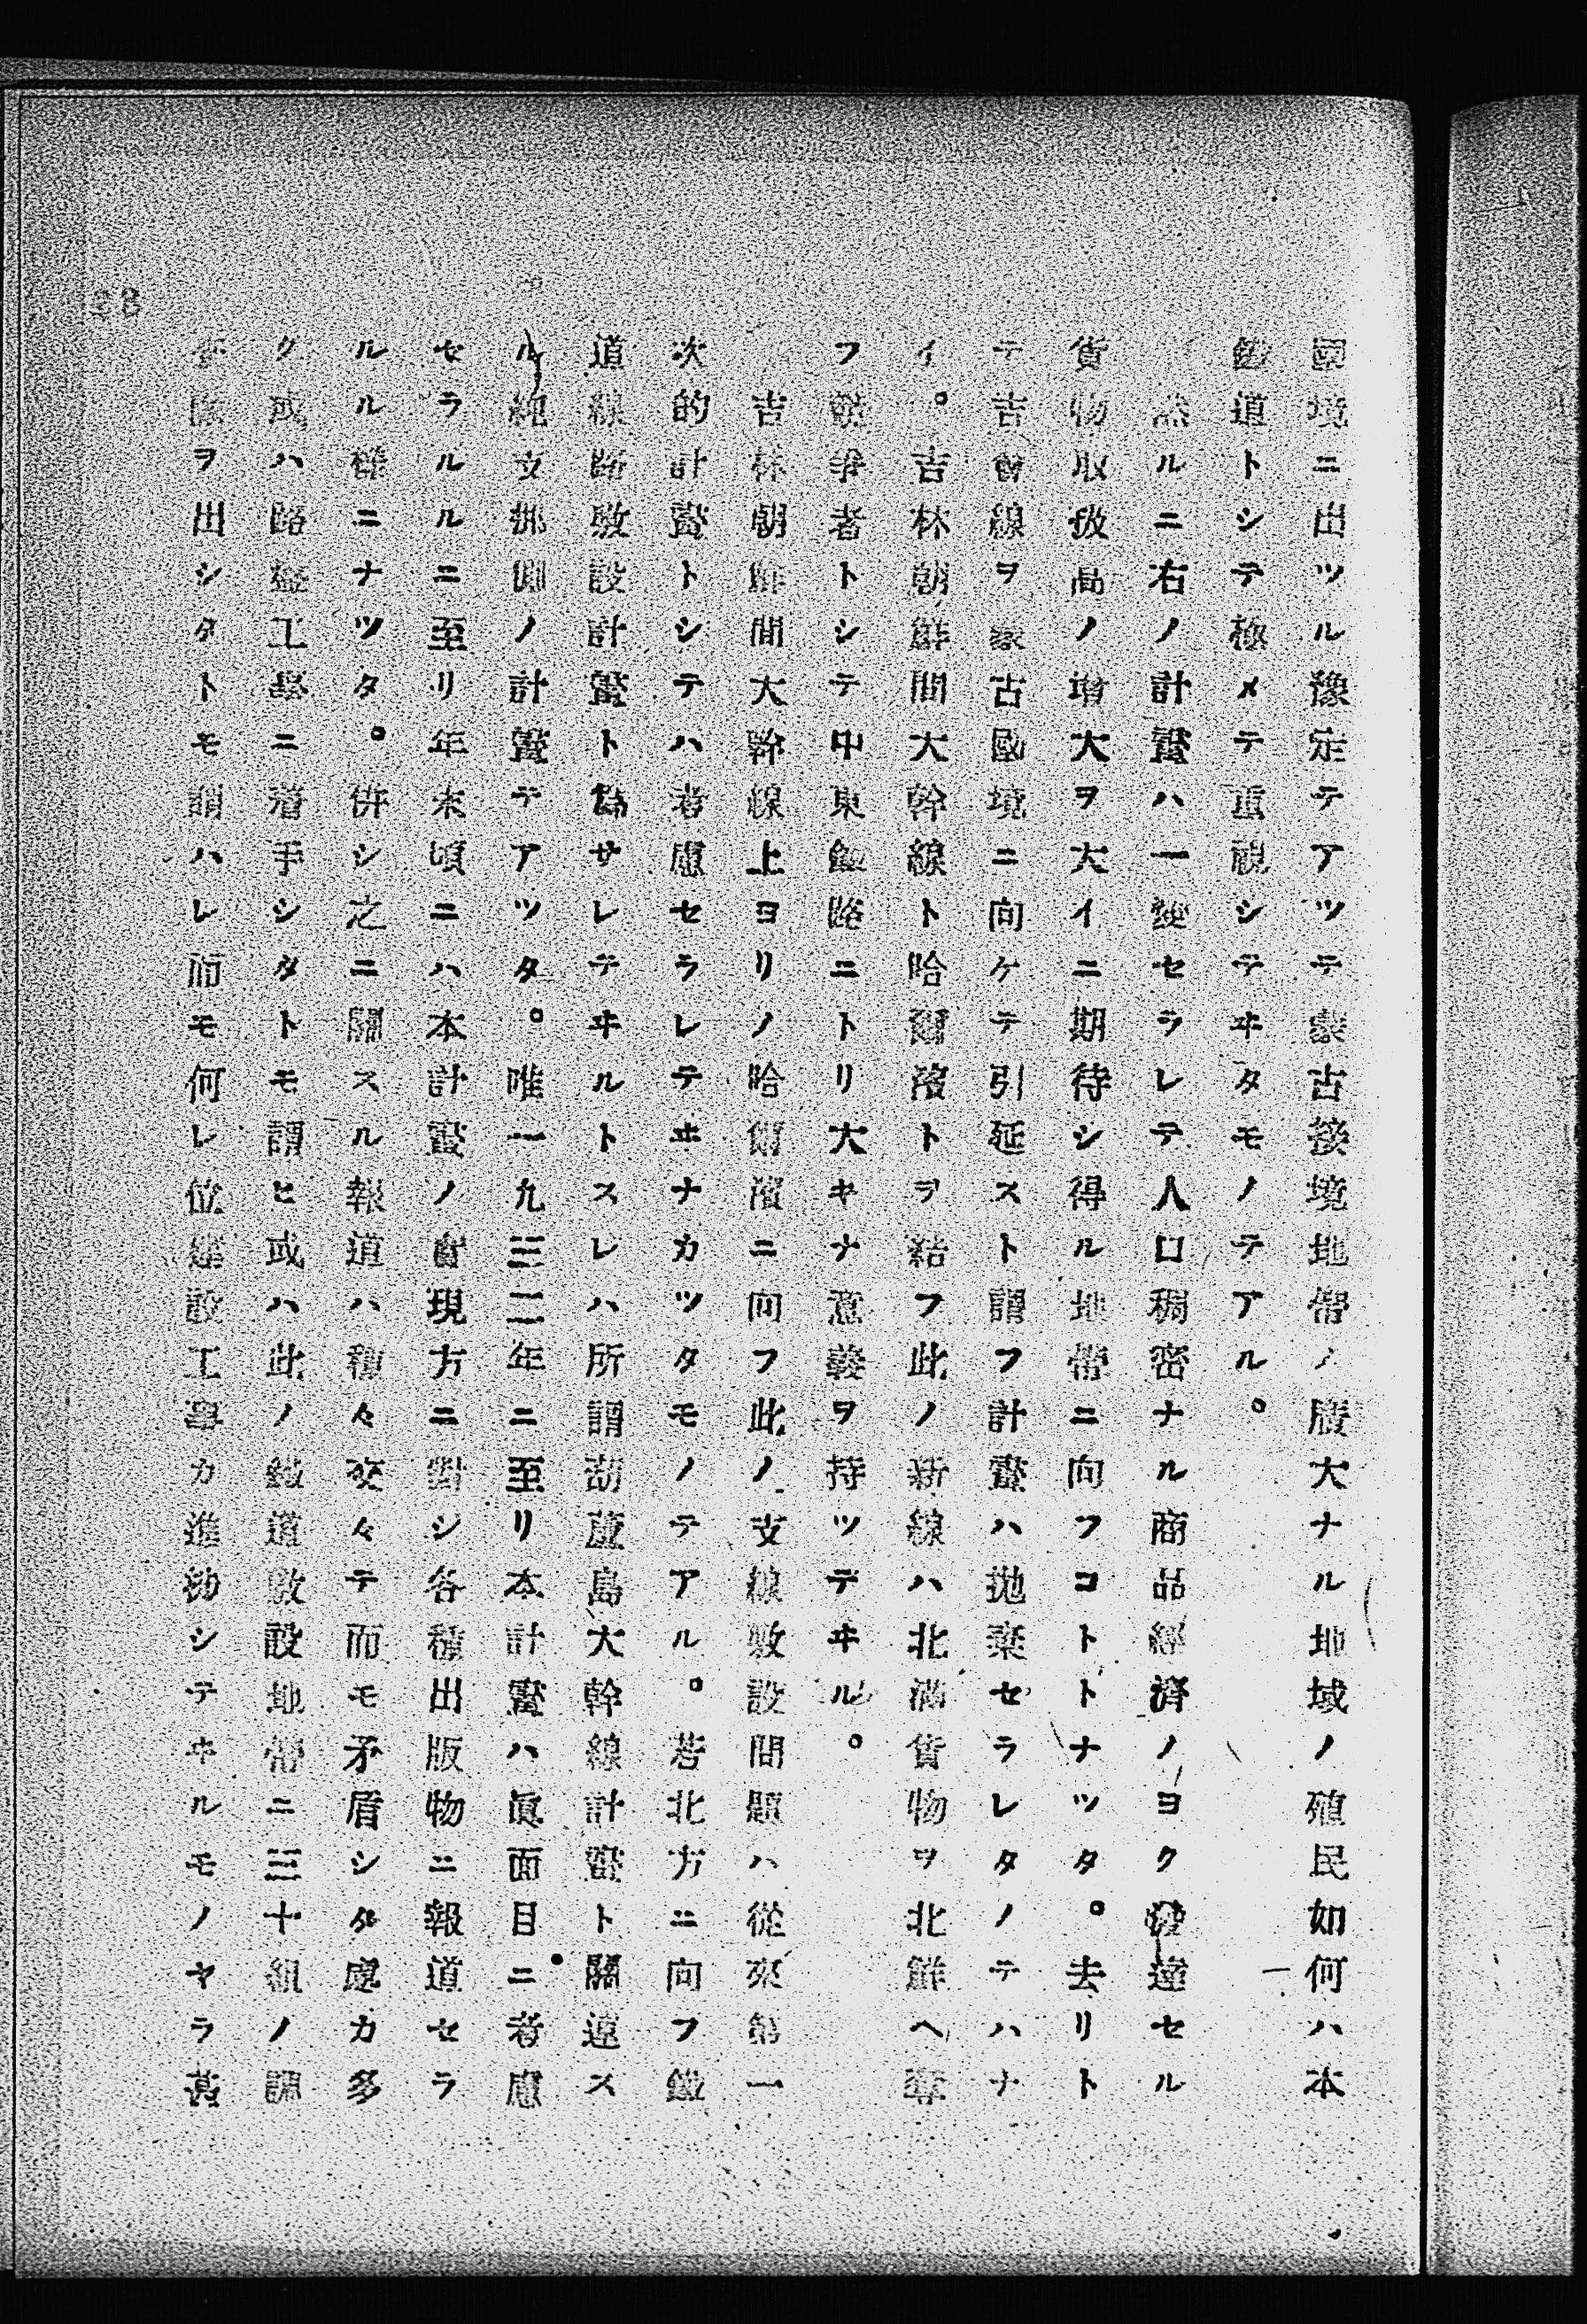 國境ニ出ツル豫定テアツテ蒙古接境地帶ノ廣大ナル地域ノ殖民如何ハ本
鐵道トシテ極メテ重視シテヰタモノテアル。
然ルニ右ノ計畫ハ一變セラレテ人口稠密ナル商品經濟ノヨク發達セル
貨物取扱高ノ增大ヲ大イニ期待シ得ル地帶ニ向フコトトナツタ。去リト
テ吉會線ヲ蒙古國境ニ向ケテ引延スト謂フ計畫ハ抛棄セラレタノテハナ
イ。吉林朝鮮間大幹線ト哈爾濱トヲ結フ此ノ新線ハ北滿貨物ヲ北鮮ヘ奪
フ競爭者トシテ中東鐵路ニトリ大キナ意義ヲ持ツテヰル。
吉林朝鮮間大幹線上ヨリノ哈爾濱ニ向フ此ノ支線敷設問題ハ從來第一
次的計畫トシテハ考慮セラレテヰナカツタモノテアル。若北方ニ向フ鐵
道線路敷設計畫ト爲サレテヰルトスレハ所謂葫蘆島大幹線計畫ト關連ス
ル純支那側ノ計畫テアツタ。唯一九三二年ニ至リ本計畫ハ眞面目ニ考慮
セラルルニ至リ年末頃ニハ本計畫ノ實現方ニ對シ各種出版物ニ報道セラ
ルル樣ニナツタ。併シ之ニ關スル報道ハ種々交々テ而モ矛盾シタ處カ多
ク或ハ路盤工事ニ着手シタトモ謂ヒ或ハ此ノ鐵道敷設地帶ニ三十組ノ調
査隊ヲ出シタトモ謂ハレ而モ何レ位建設工事カ進捗シテヰルモノヤラ甚